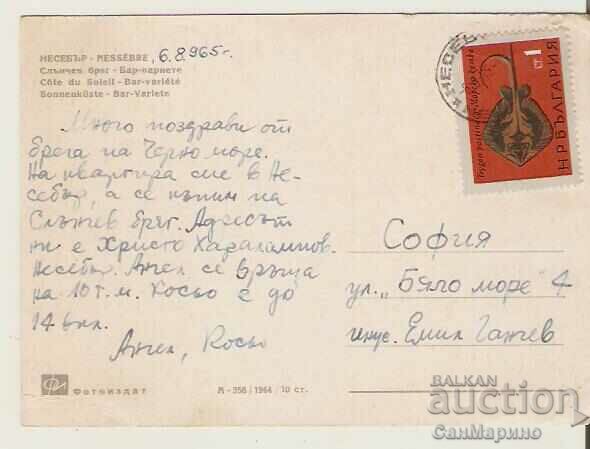 НЕСЕБЪР - MESSÈBRE, 6.8.965г.
Слънчев бряг - Бар-вариете
Côte du Soleil - Bar-variété
Sonnenküste - Bar-Variete
Много поздрави от
брега на Черно море.
На квартира сме в Не-
себър, а се къпим на
Слънчев бряг. Адресът
ни е Христо Харалампов.
Несебър. Ангел се връща
на 10 т.м. Косьо е до
14 вкл.
Ангел, Косьо
Фотоиздат
М-356/1964/10 ст.
НЕСЕБ
1 ст.
НР БЪЛГАРИЯ
София
ул. „Бяло море" 4
Емил Ганчев
BALKAN
auction
СанМарино